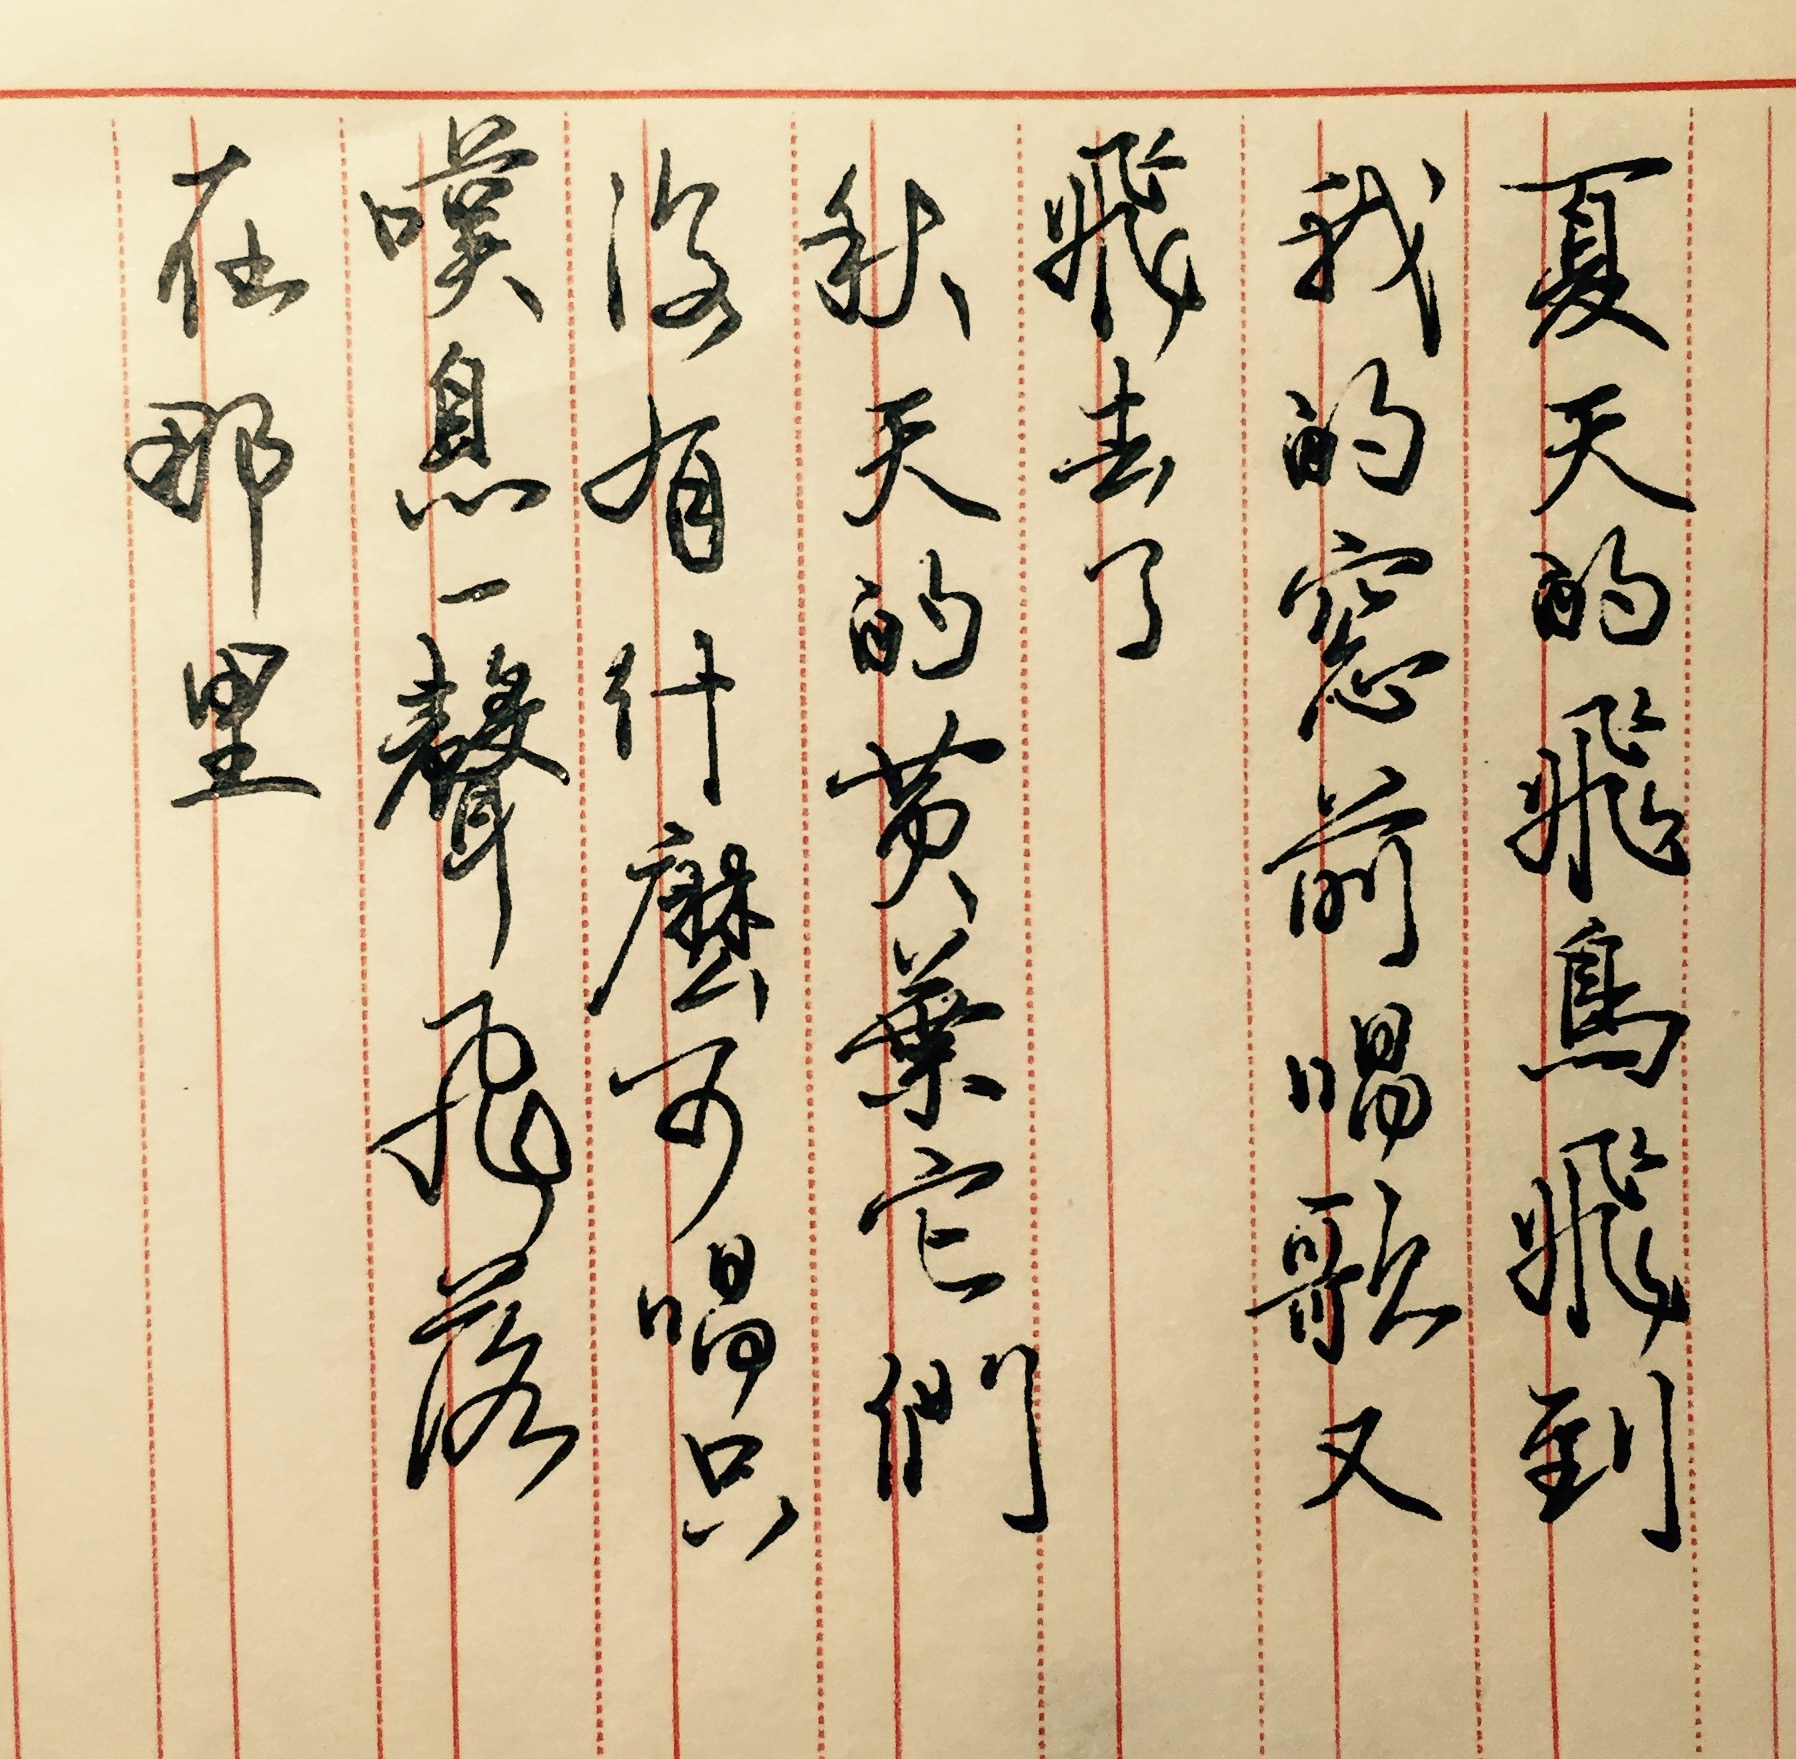 夏天的飛鳥飛到
我的窓前唱歌又
飛去了
秋天的黄葉它們
没有什麼可唱只
嘆息一聲飛落
在那里